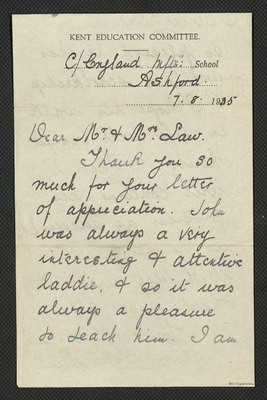 KENT EDUCATION COMMITTEE.
C/England Infts: School
Ashford.
7. 8. 1935
Dear Mr. & Mrs Law.
Thank you so
much for your letter
of appreciation. John
was always a very
interesting & attentive
laddie, & so it was
always a pleasure
to teach him. I am